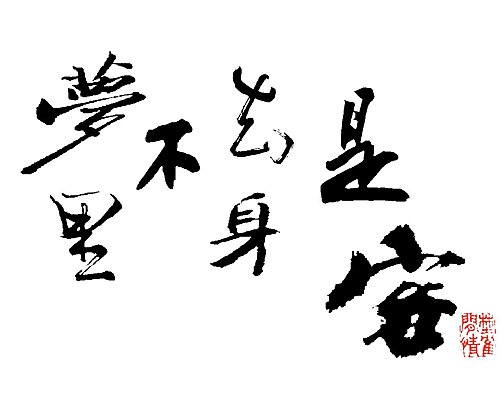 夢里
不
知身
是客